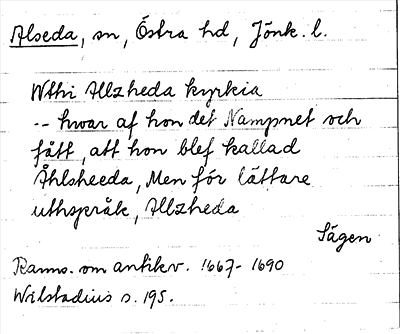 Alseda, sn, Östra hd, Jönk. l.
Wthi Allzheda kyrkia
-- hwar af hon det Nampnet och
fått, att hon blef kallad
Åhlsheeda, Men för lättare
uthspråk, Allzheda
Sägen
Ranns. om antikv. 1667-1690
Wilstadius s. 195.